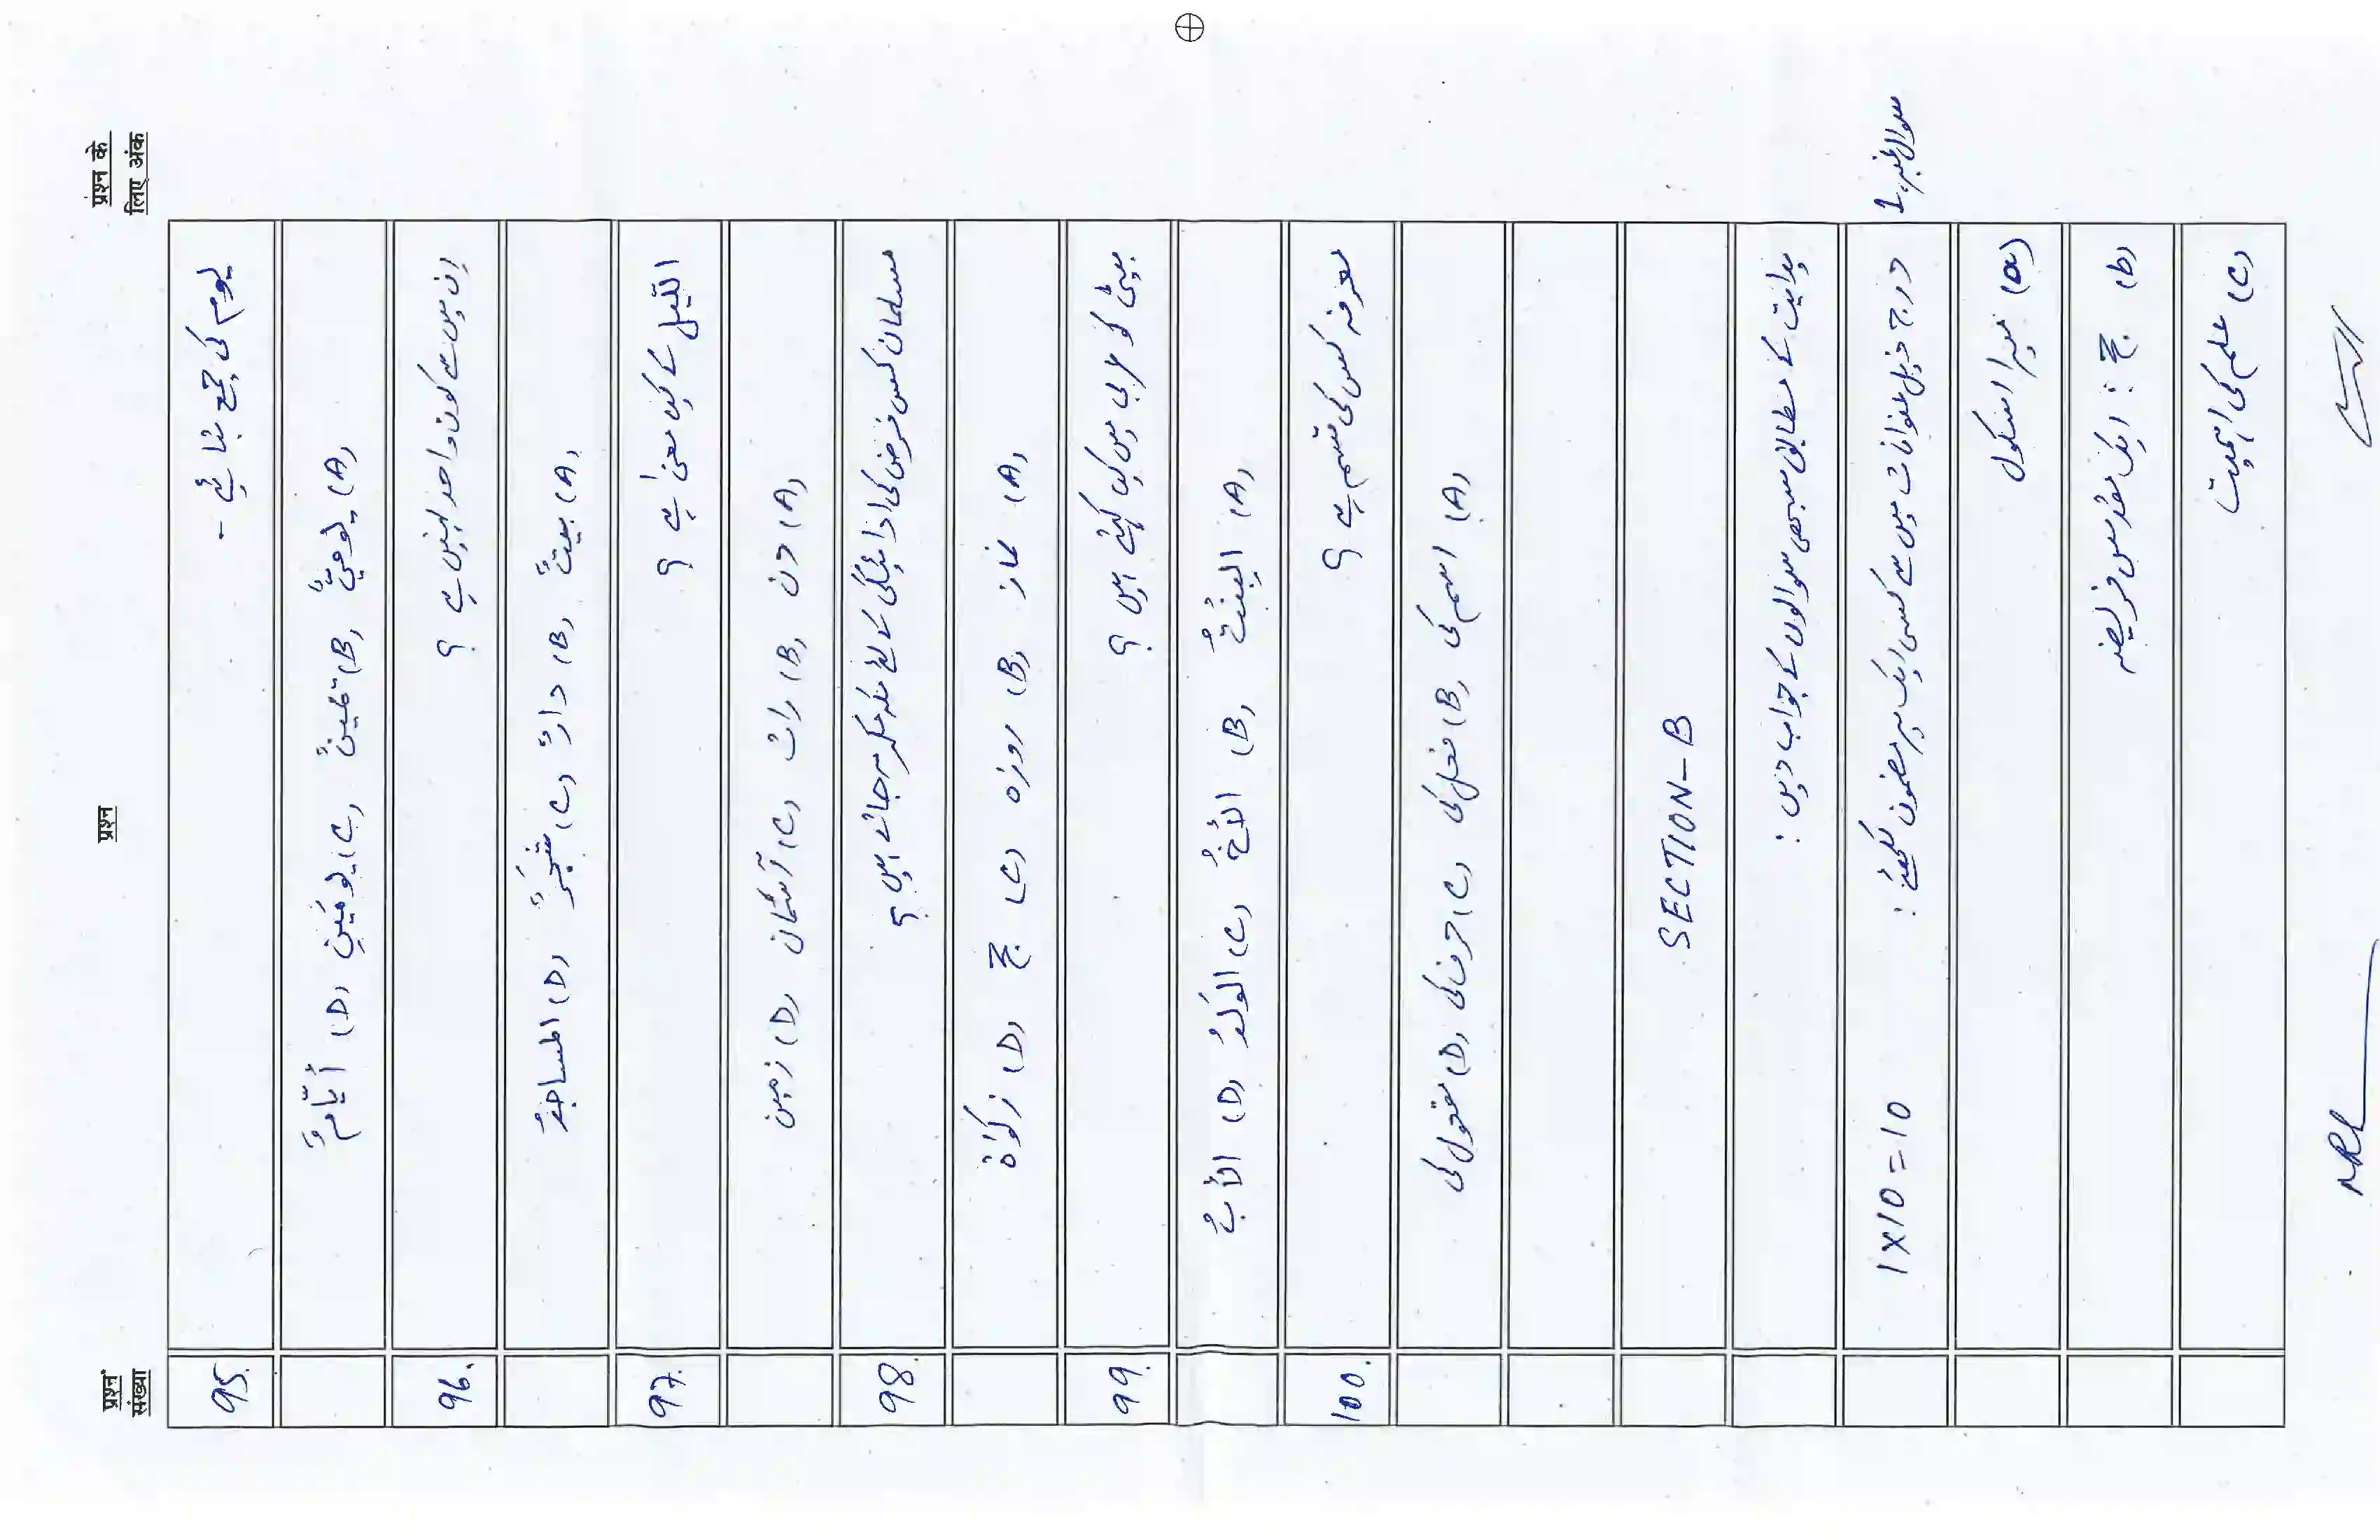 प्रश्न संख्या
प्रश्न
प्रश्न के लिए अंक
95. یوم کی جمع بتائیے -
(A) یومیٌّ (B) (C) یومَینِ (D) أیّامٌ
96. ان میں سے کون واحد نہیں ہے ؟
(A) بیتٌ (B) دارٌ (C) شَجَرٌ (D) المساجدُ
97. اللّیل کے کیا معنیٰ ہے ؟
(A) دن (B) رات (C) آسمان (D) زمین
98. مسلمان کس فرض کی ادائیگی کے لئے مکہ مکرمہ جاتے ہیں ؟
(A) نماز (B) روزہ (C) حج (D) زکوٰۃ
99. بیٹی کو عربی میں کیا کہتے ہیں ؟
(A) البنتُ (B) الأخُ (C) الوَلَدُ (D) الأبُ
100. معرفہ کس کی قسم ہے ؟
(A) اسم کی (B) فعل کی (C) حرف کی (D) مفعول کی
SECTION-B
ہدایت کے مطابق سبھی سوالوں کے جواب دیں :
سوال نمبر 1 درج ذیل عنوانات میں سے کسی ایک پر مضمون لکھئے : 1×10=10
(a) میرا اسکول
(b) حج : ایک مقدس فریضہ
(c) علم کی اہمیت